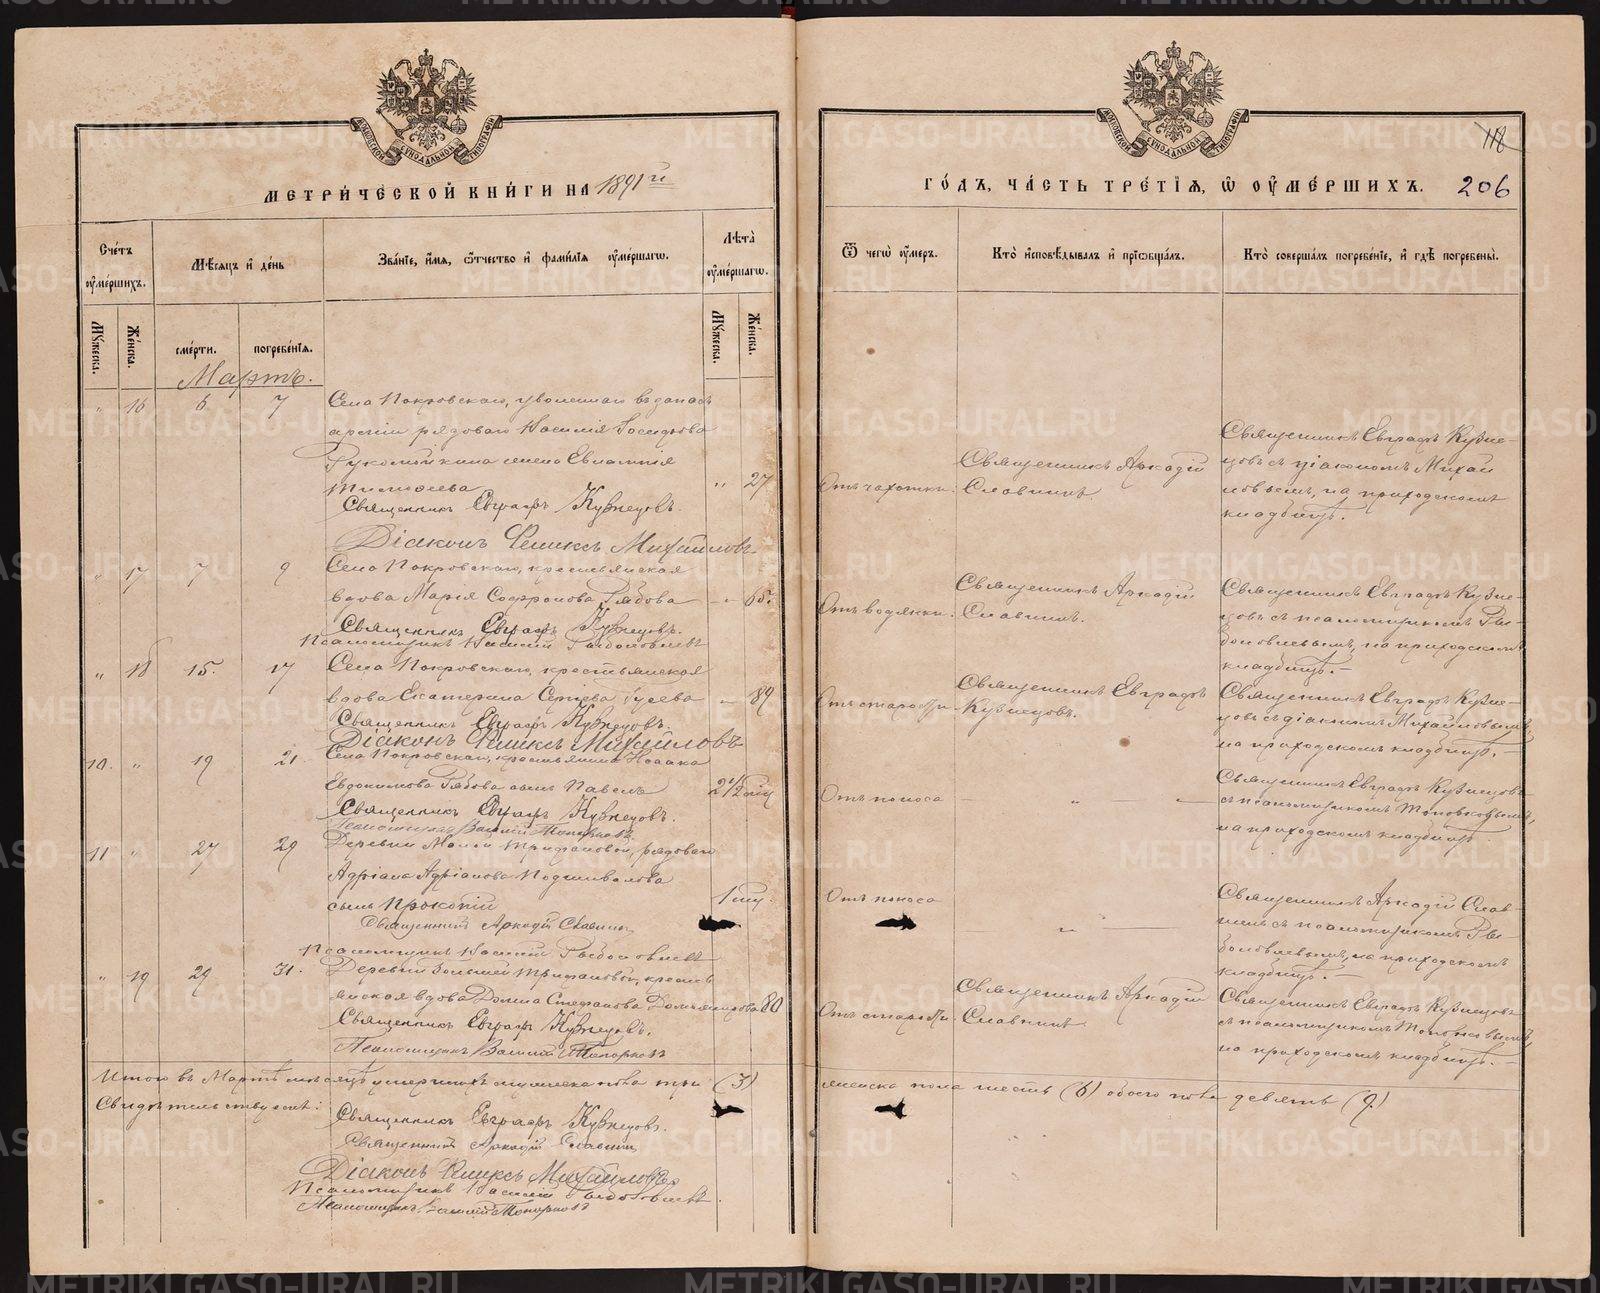 МЕТРИЧЕСКОЙ КНИГИ НА 1891 й
ГОДЪ, ЧАСТЬ ТРЕТІЯ, Ѿ ОУМЕРШИХЪ.
206
Счетъ оумершихъ.
Мѣсяцъ и день
Званіе, имя, ѿтчество и фамилія оумершагω.
Лѣта оумершагω.
Ѿ чегω оумеръ.
Кто исповѣдывалъ и пріωбщалъ.
Кто совершалъ погребеніе, и гдѣ погребены.
Мужеска.
Женска.
смерти.
погребенія.
Мужеска.
Женска.
Мартъ.
" 16 6 7 Села Покровскаго, уволеннаго въ запасъ
арміи рядоваго Василія
жена Евлампія
Тимофеева " 27
Отъ чахотки.
Священникъ Аркадій
Славнинъ
Священникъ Евграфъ Кузне-
цовъ съ діакономъ Михай
ловымъ, на приходскомъ
кладбищѣ.
Священникъ Евграфъ Кузнецовъ.
Діаконъ Феликсъ Михайловъ
" 17 7 9 Села Покровскаго, крестьянская
вдова Марія Софронова Рябова " 65.
Отъ водянки.
Священникъ Аркадій
Славнинъ.
Священникъ Евграфъ Кузне-
цовъ съ псаломщикомъ
на приходскомъ
кладбищѣ.
Священникъ Евграфъ Кузнецовъ.
Псаломщикъ Василій
" 18 15. 17 Села Покровскаго, крестьянская
вдова Екатерина Сергѣева Гусева " 89
Отъ старости
Священникъ Евграфъ
Кузнецовъ.
Священникъ Евграфъ Кузне-
цовъ съ діакономъ Михайловымъ,
на приходскомъ кладбищѣ.
Священникъ Евграфъ Кузнецовъ.
Діаконъ Феликсъ Михайловъ
10. " 19 21. Села Покровскаго, крестьянина Исаака
Евдокимова Рябова сынъ Павелъ 2 1/2 мѣс
Отъ поноса
Священникъ Евграфъ Кузнецовъ
съ псаломщикомъ Топорковымъ,
на приходскомъ кладбищѣ.
Священникъ Евграфъ Кузнецовъ.
Псаломщикъ Василій Топорковъ.
11 " 27 29 Деревни Малой Трифановой, рядоваго
Адріана Адріанова Подшивалова
сынъ Прокопій 1 мѣс.
Отъ поноса
Священникъ Аркадій Слав-
нинъ съ псаломщикомъ
на приходскомъ
кладбищѣ.
Священникъ Аркадій Славнинъ
Псаломщикъ Василій
" 19 29 31. Деревни Большей Трифановой, кресть
янская вдова Домна Стефанова 80
Отъ старости
Священникъ Аркадій
Славнинъ
Священникъ Евграфъ Кузнецовъ
съ псаломщикомъ Топорковымъ,
на приходскомъ кладбищѣ.
Священникъ Евграфъ Кузнецовъ.
Псаломщикъ Василій Топорковъ
Итого въ Мартѣ мѣсяцѣ умершихъ мужеска пола три (3) женска пола шесть (6) обоего пола девять (9)
Свидѣтельствуемъ:
Священникъ Евграфъ Кузнецовъ.
Священникъ Аркадій Славнинъ
Діаконъ Феликсъ Михайловъ
Псаломщикъ Василій
Псаломщикъ Василій Топорковъ
METRIKI.GASO-URAL.RU